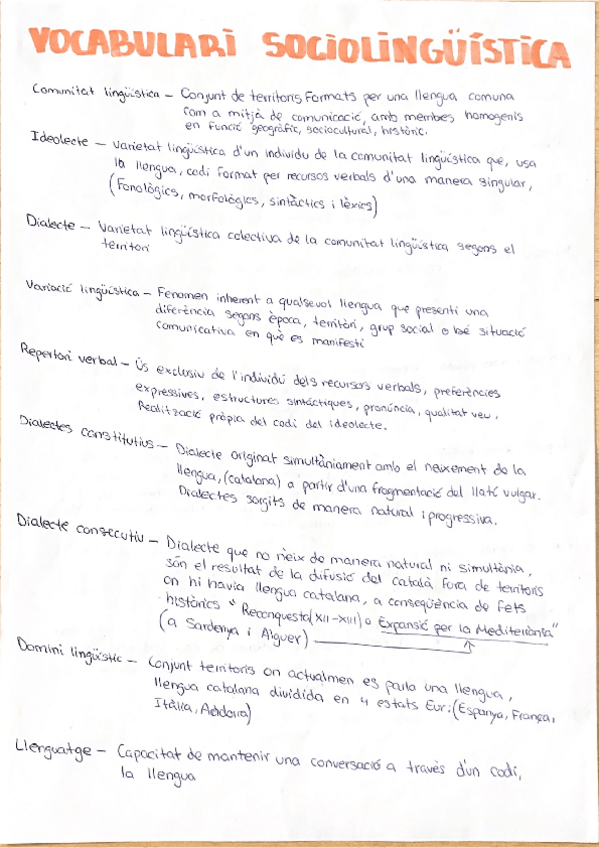 VOCABULARI SOCIOLINGÜÍSTICA
Comunitat lingüística – Conjunt de territoris formats per una llengua comuna
com a mitjà de comunicació, amb membes homogenis
en funció geogràfic, sociocultural, històric.
Ideolecte – Varietat lingüística d'un individu de la comunitat lingüística que, usa
la llengua, codi format per recursos verbals d'una manera singular,
(Fonològics, morfològics, sintàctics i lèxics)
Dialecte – Varietat lingüística colectiva de la comunitat lingüística segons el
territori
Variació lingüística – Fenomen inherent a qualsevol llengua que presenti una
diferència segons època, territori, grup social o bé situació
comunicativa en què es manifesti
Repertori verbal – Ús exclusiu de l'individú dels recursos verbals, preferències
expressives, estructures sintàctiques, pronúncia, qualitat veu.
Realització pròpia del codi del ideolecte.
Dialectes constitutius – Dialecte originat simultàniament amb el neixement de la
llengua, (catalana) a partir d'una fragmentació del llatí vulgar.
Dialectes sorgits de manera natural i progressiva.
Dialecte consecutiu – Dialecte que no neix de manera natural ni simultània,
són el resultat de la difusió del català, fora de territoris
on hi havia llengua catalana, a conseqüència de fets
històrics "Reconquesta (XII-XIII) o Expansió per la Mediterrània"
(a Sardenya i Alguer)
Domini lingüístic – Conjunt territoris on actualmen es parla una llengua,
llengua catalana dividida en 4 estats Eur: (Espanya, França,
Itàlia, Andorra)
Llenguatge – Capacitat de mantenir una conversació a través d'un codi,
la llengua